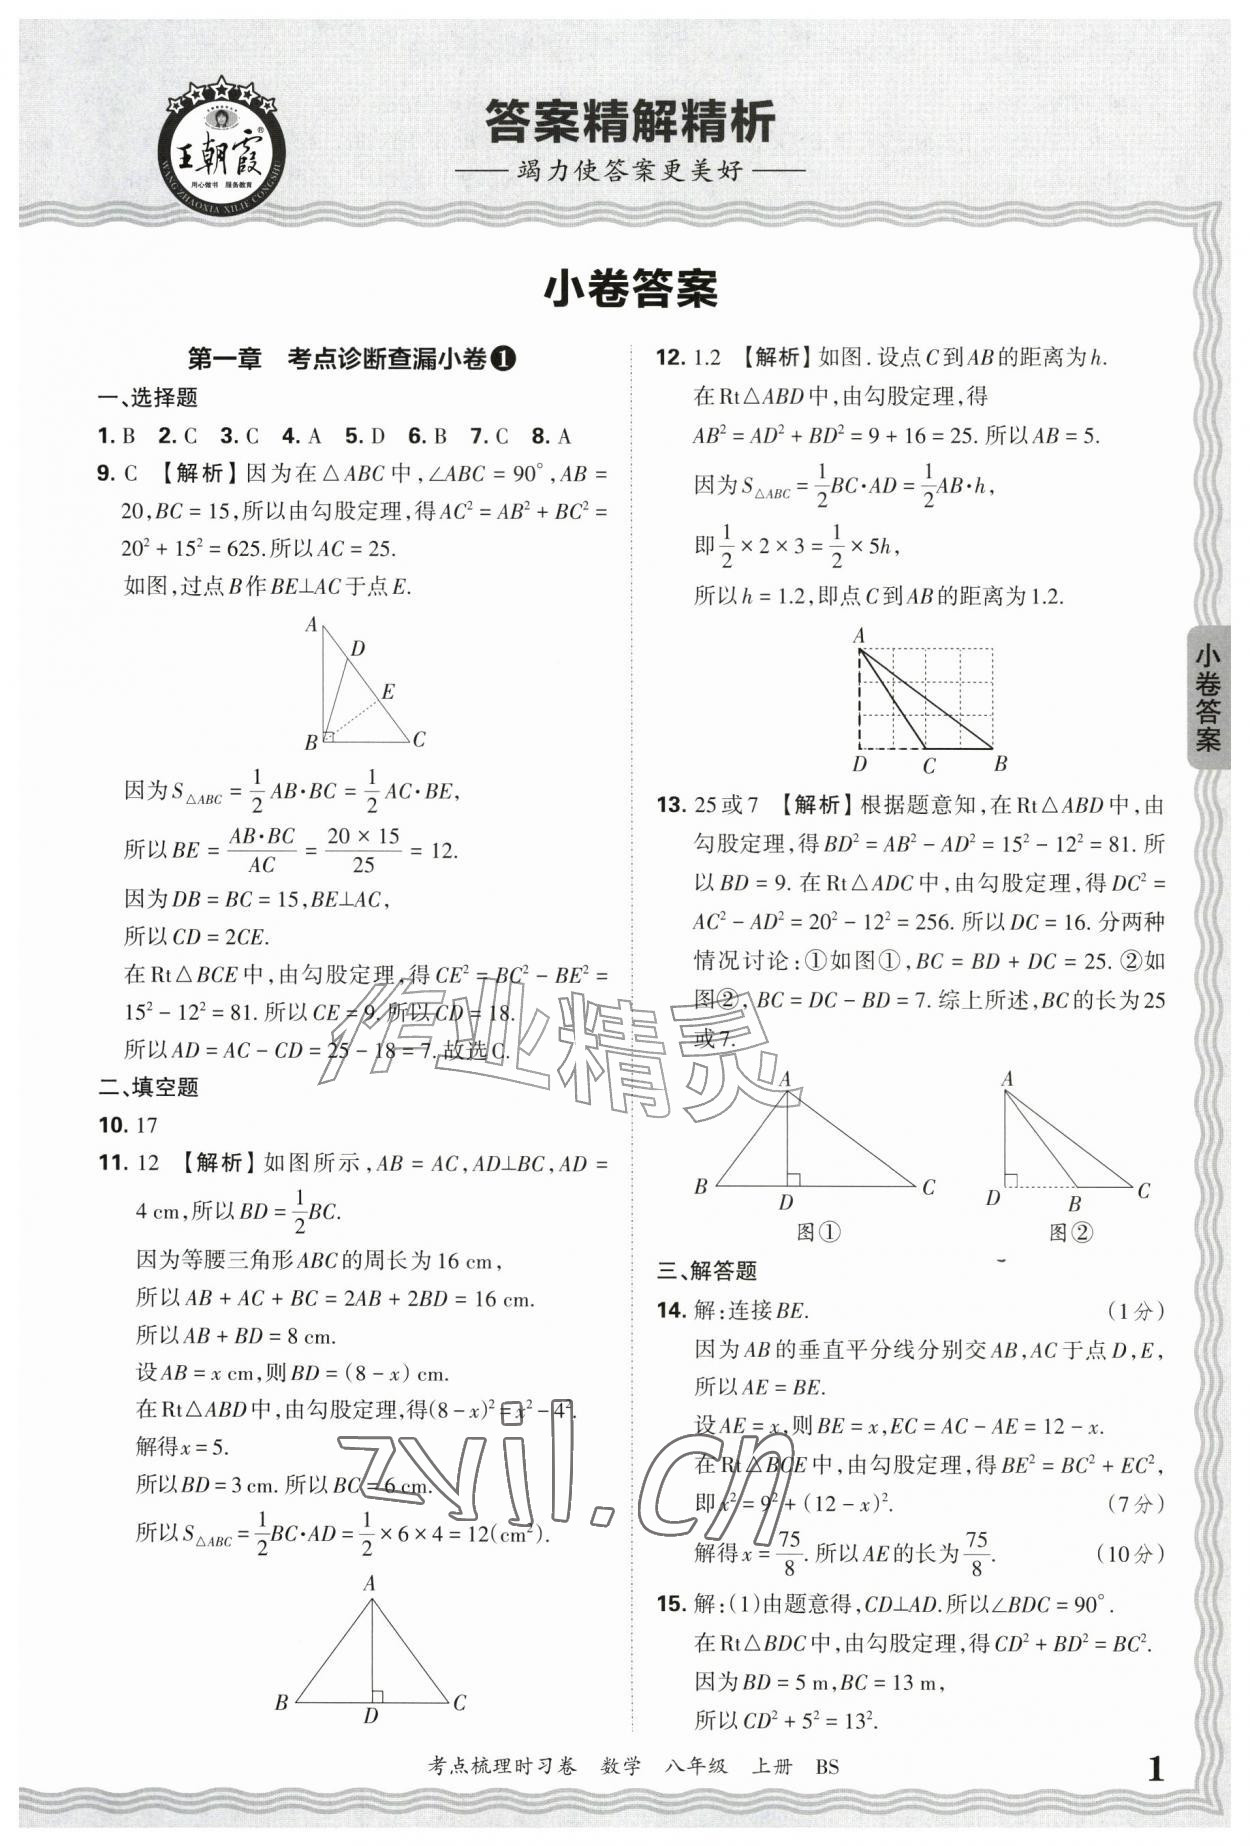 王朝霞®
用心做书 服务教育
WANG ZHAOXIA XILIE CONGSHU
答案精解精析
竭力使答案更美好
小卷答案
第一章 考点诊断查漏小卷❶
一、选择题
1. B 2. C 3. C 4. A 5. D 6. B 7. C 8. A
9. C 【解析】因为在△ABC中,∠ABC=90°,AB=
20,BC=15,所以由勾股定理,得AC²=AB²+BC²=
20²+15²=625.所以AC=25.
如图,过点B作BE⊥AC于点E.
A
D
E
B
C
因为S△ABC=1/2 AB·BC=1/2 AC·BE,
所以BE=AB·BC/AC=20×15/25=12.
因为DB=BC=15,BE⊥AC,
所以CD=2CE.
在Rt△BCE中,由勾股定理,得CE²=BC²-BE²=
15²-12²=81.所以CE=9.所以CD=18.
所以AD=AC-CD=25-18=7.故选C.
二、填空题
10. 17
11. 12 【解析】如图所示,AB=AC,AD⊥BC,AD=
4 cm,所以BD=1/2 BC.
因为等腰三角形ABC的周长为16 cm,
所以AB+AC+BC=2AB+2BD=16 cm.
所以AB+BD=8 cm.
设AB=x cm,则BD=(8-x)cm.
在Rt△ABD中,由勾股定理,得(8-x)²=x²-4².
解得x=5.
所以BD=3 cm.所以BC=6 cm.
所以S△ABC=1/2 BC·AD=1/2×6×4=12(cm²).
A
B
D
C
12. 1.2 【解析】如图.设点C到AB的距离为h.
在Rt△ABD中,由勾股定理,得
AB²=AD²+BD²=9+16=25.所以AB=5.
因为S△ABC=1/2 BC·AD=1/2 AB·h,
即1/2×2×3=1/2×5h,
所以h=1.2,即点C到AB的距离为1.2.
A
D
C
B
13. 25或7 【解析】根据题意知,在Rt△ABD中,由
勾股定理,得BD²=AB²-AD²=15²-12²=81.所
以BD=9.在Rt△ADC中,由勾股定理,得DC²=
AC²-AD²=20²-12²=256.所以DC=16.分两种
情况讨论:①如图①,BC=BD+DC=25.②如
图②,BC=DC-BD=7.综上所述,BC的长为25
或7.
A
B
D
C
图①
A
D
B
C
图②
三、解答题
14. 解:连接BE. (1分)
因为AB的垂直平分线分别交AB,AC于点D,E,
所以AE=BE.
设AE=x,则BE=x,EC=AC-AE=12-x.
在Rt△BCE中,由勾股定理,得BE²=BC²+EC²,
即x²=9²+(12-x)². (7分)
解得x=75/8.所以AE的长为75/8. (10分)
15. 解:(1)由题意得,CD⊥AD.所以∠BDC=90°.
在Rt△BDC中,由勾股定理,得CD²+BD²=BC².
因为BD=5 m,BC=13 m,
所以CD²+5²=13².
小卷答案
作业精灵
zyjl.cn
考点梳理时习卷 数学 八年级 上册 BS
1